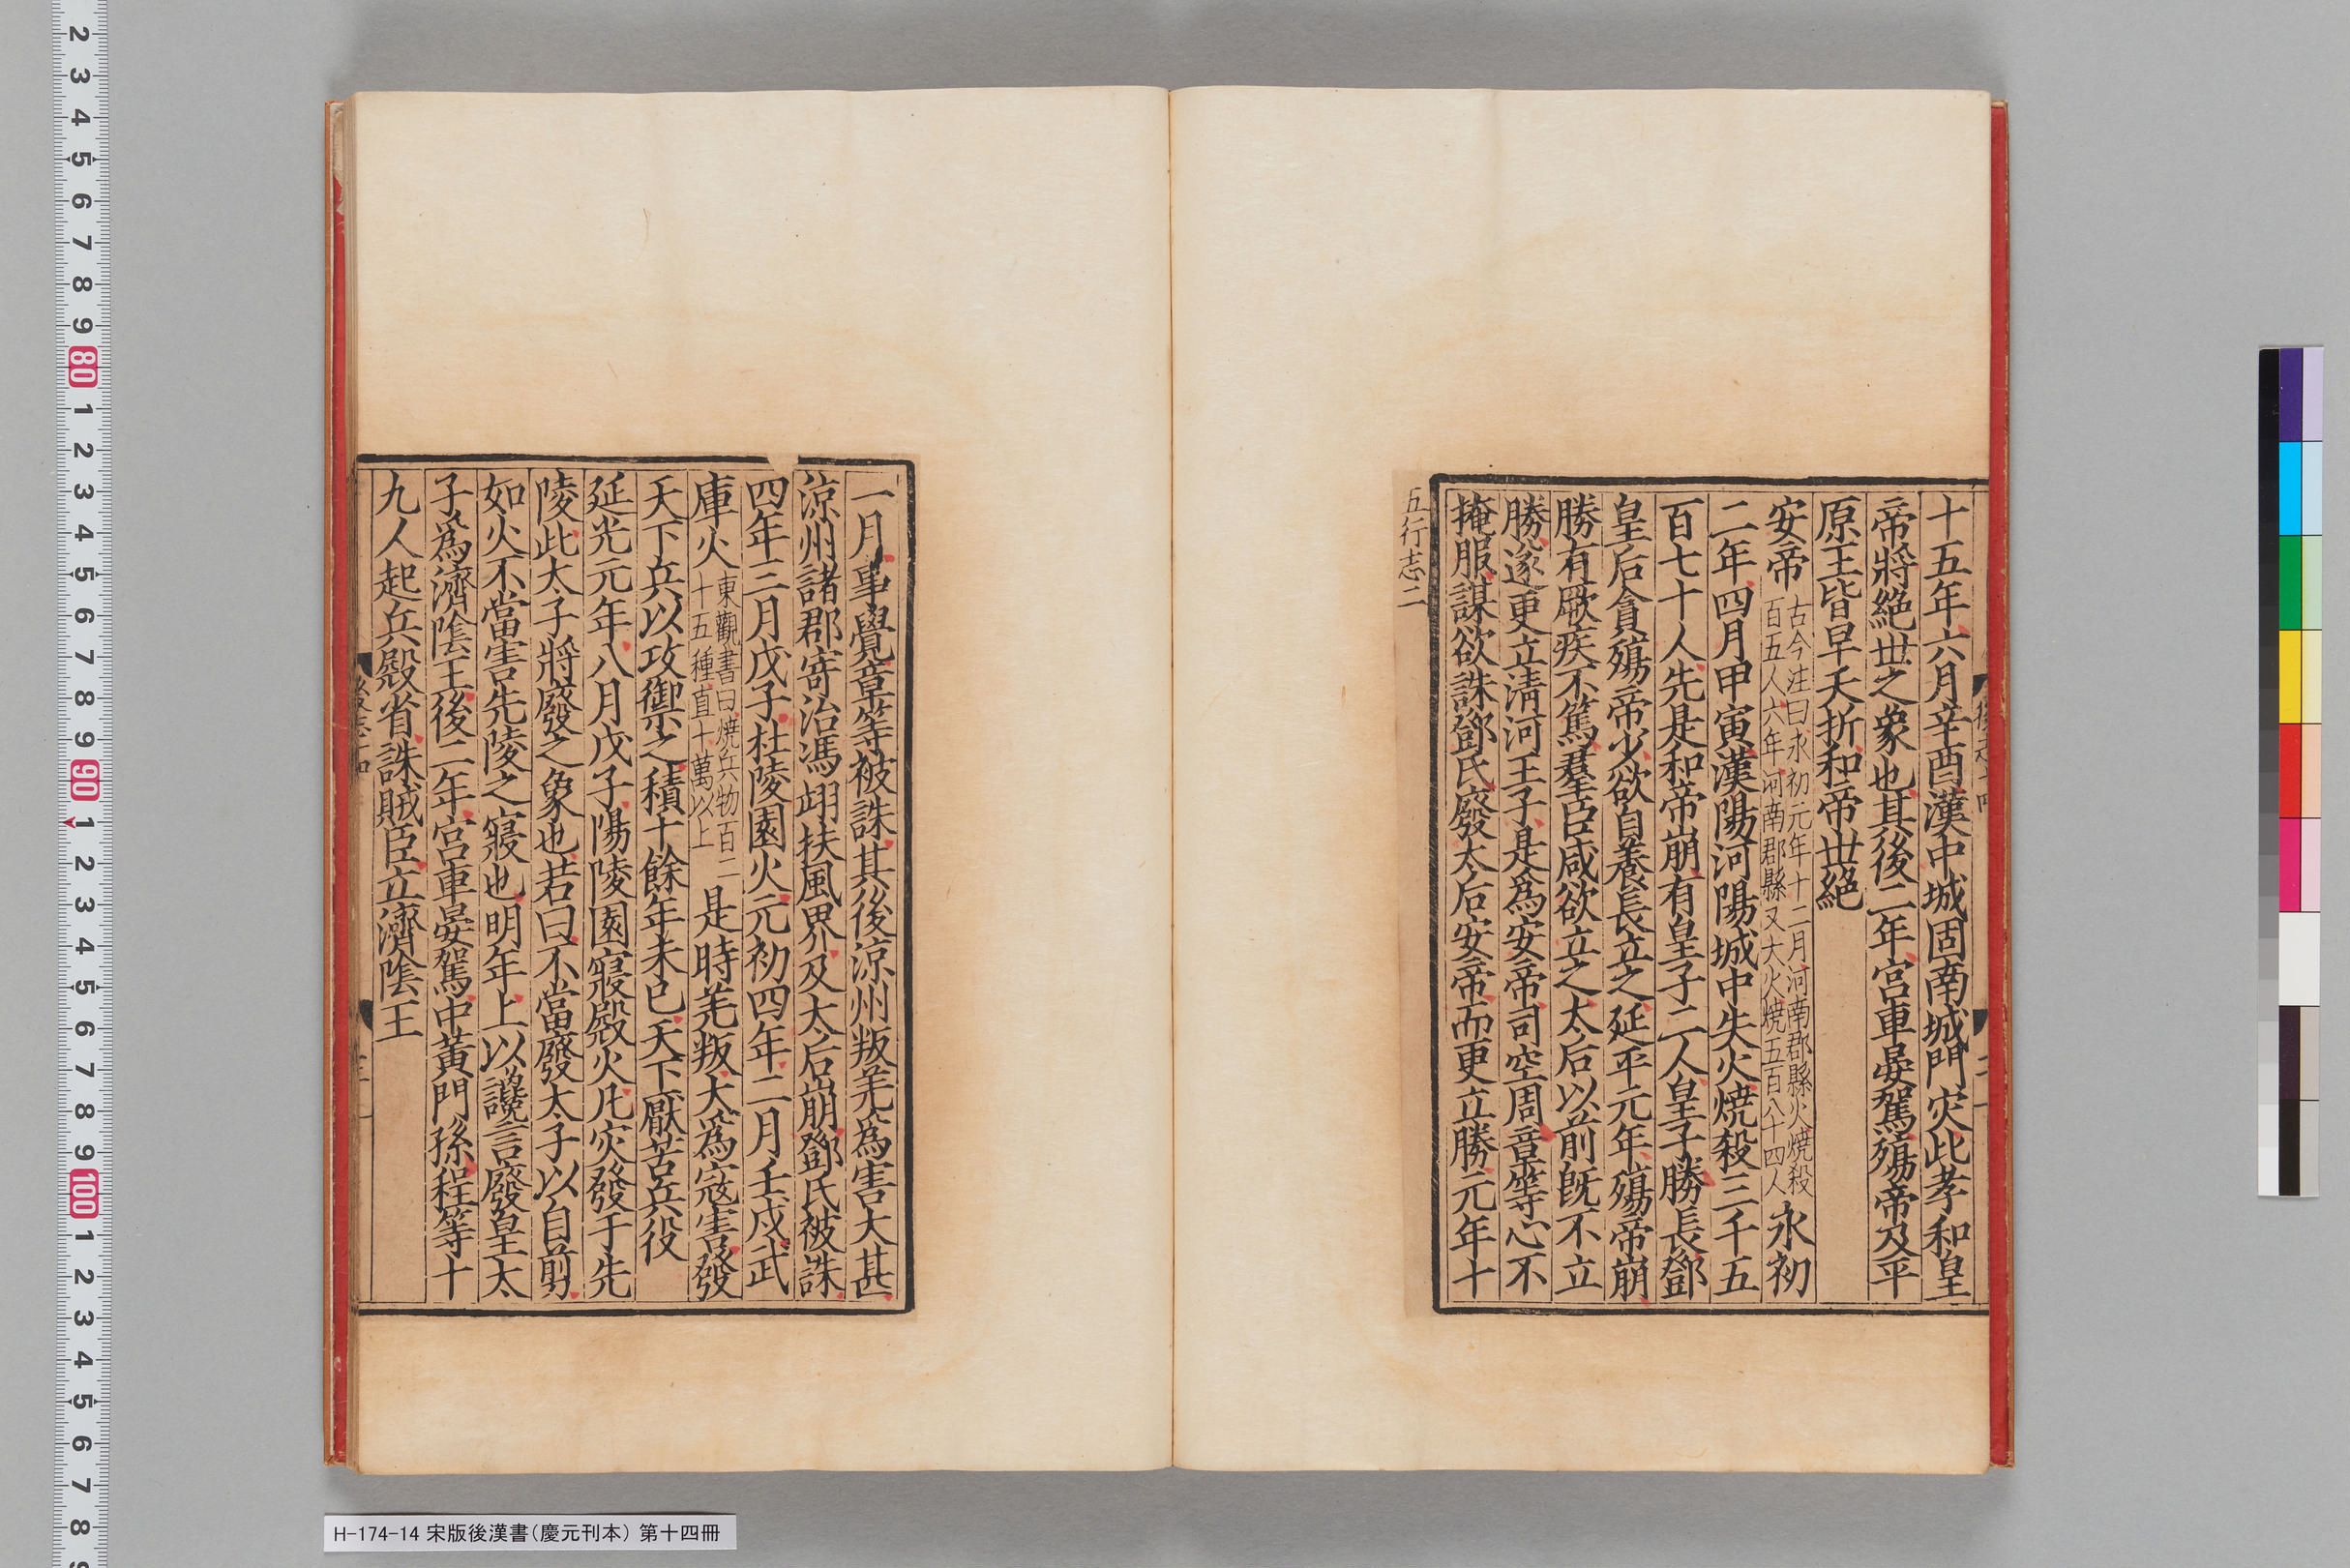 十五年六月辛酉漢中城固南城門灾此孝和皇
帝將絕世之象也其後二年宮車晏駕殤帝及平
原王皆早夭折和帝世絕
安帝古今注曰永初元年十二月河南郡縣火燒殺百五人六年河南郡縣又大火燒五百八十四人永初
二年四月甲寅漢陽河陽城中失火燒殺三千五
百七十人先是和帝崩有皇子二人皇子勝長鄧
皇后貪殤帝少欲自養長立之延平元年殤帝崩
勝有厥疾不篤羣臣咸欲立之太后以前旣不立
勝遂更立淸河王子是爲安帝司空周章等心不
掩服謀欲誅鄧氏廢太后安帝而更立勝元年十
五行志二
一月事覺章等被誅其後涼州叛羌爲害大甚
涼州諸郡寄治馮翊扶風界及太后崩鄧氏被誅
四年三月戊子杜陵園火元初四年二月壬戌武
庫火東觀書曰燒兵物百二十五種直十萬以上是時羌叛大爲寇害發
天下兵以攻禦之積十餘年未已天下厭苦兵役
延光元年八月戊子陽陵園寢殿火凡灾發于先
陵此太子將廢之象也若曰不當廢太子以自剪
如火不當害先陵之寢也明年上以讒言廢皇太
子爲濟陰王後二年宮車晏駕中黃門孫程等十
九人起兵殿省誅賊臣立濟陰王
H-174-14 宋版後漢書(慶元刊本) 第十四冊